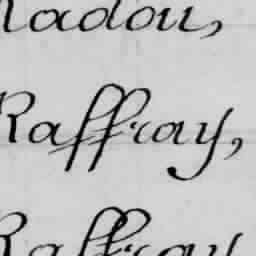 Radou,
Raffray,
Raffray